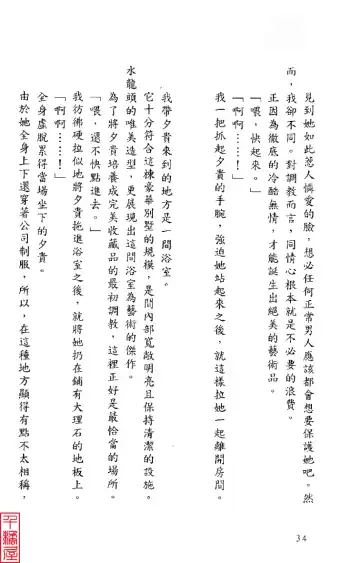 見到她如此惹人憐愛的臉，想必任何正常男人應該都會想要保護她吧。然
而，我卻不同。對調教而言，同情心根本就是不必要的浪費。
正因為徹底的冷酷無情，才能誕生出絕美的藝術品。
「喂，快起來。」
「啊啊……！」
我一把抓起夕貴的手腕，強迫她站起來之後，就這樣拉她一起離開房間。
我帶夕貴來到的地方是一間浴室。
它十分符合這棟豪華別墅的規模，是間內部寬敞明亮且保持清潔的設施。
水龍頭的唯美造型，更展現出這間浴室為藝術的傑作。
為了將夕貴培養成完美收藏品的最初調教，這裡正好是最恰當的場所。
「喂，還不快點進去。」
我彷彿硬拉似地將夕貴拖進浴室之後，就將她扔在鋪有大理石的地板上。
「啊啊……！」
全身虛脫累得當場坐下的夕貴。
由於她全身上下還穿著公司制服，所以，在這種地方顯得有點不太相稱，
34